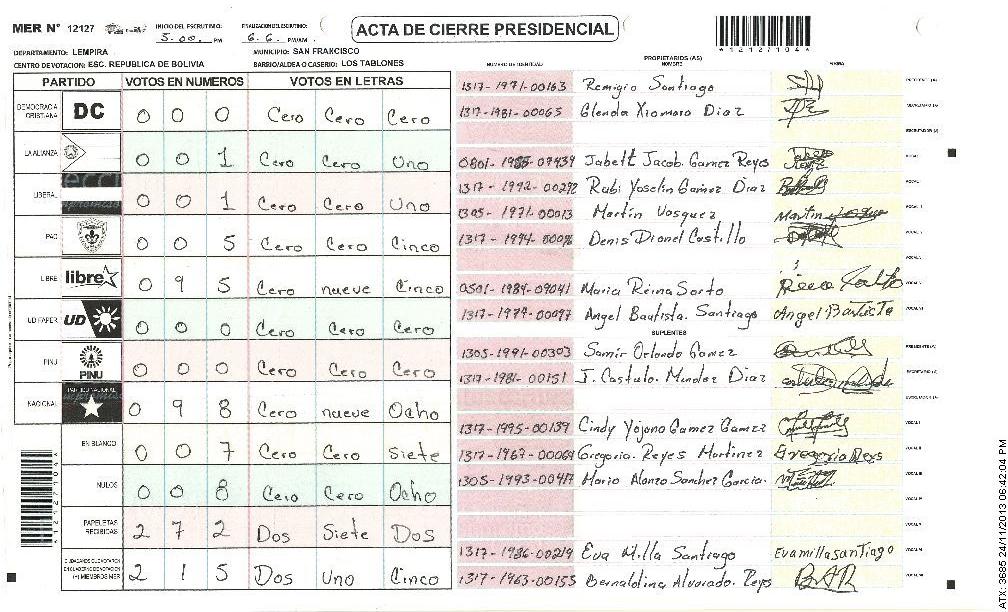 MER N° 12127
INICIO DEL ESCRUTINIO: 5.00. PM
FINALIZACION ESCRUTINIO: 6.6. PM/AM
ACTA DE CIERRE PRESIDENCIAL
*12127104*
DEPARTAMENTO: LEMPIRA
MUNICIPIO: SAN FRANCISCO
CENTRO DE VOTACION: ESC. REPUBLICA DE BOLIVIA
BARRIO/ALDEA O CASERIO: LOS TABLONES
PARTIDO VOTOS EN NUMEROS VOTOS EN LETRAS
DEMOCRACIA CRISTIANA DC 0 0 0 Cero Cero Cero
LA ALIANZA 0 0 1 Cero Cero Uno
LIBERAL 0 0 1 Cero Cero Uno
PAC 0 0 5 Cero Cero Cinco
LIBRE libre 0 9 5 Cero nueve Cinco
UD FAPER UD 0 0 0 Cero Cero Cero
PINU PINU 0 0 0 Cero Cero Cero
NACIONAL PARTIDO NACIONAL 0 9 8 Cero nueve Ocho
EN BLANCO 0 0 7 Cero Cero Siete
NULOS 0 0 8 Cero Cero Ocho
PAPELETAS RECIBIDAS 2 7 2 Dos Siete Dos
2 1 5 Dos Uno Cinco
NUMERO DE IDENTIDAD
PROPIETARIOS (AS)
NOMBRE
FIRMA
1317-1971-00163 Remigio Santiago
1317-1981-00065 Glenda Xiomara Diaz
0801-1985-07439 Jabett Jacob Gamez Reyes
1317-1992-00292 Rubi Yoselin Gamez Diaz
1305-1971-00013 Martin Vasquez
1317-1994-00096 Denis Dionel Castillo
0501-1984-09041 Maria Reina Sorto
1317-1979-00097 Angel Bautista. Santiago Angel Bautista
SUPLENTES
1305-1991-00303 Samir Orlando Gomez
1317-1981-00151 J. Castulo. Mendez Diaz
1317-1995-00139 Cindy Yojana Gamez Gamez
1317-1967-00069 Gregoria. Reyes Martinez Gregoria Reys
1305-1993-00417 Mario Alonzo Sanchez Garcia.
1317-1986-00219 Eva Milla Santiago Eva milla santiago
1317-1963-00155 Bernaldina Alvarado. Reys BAR
ATX-3685 24/11/2013 06:42:04 PM